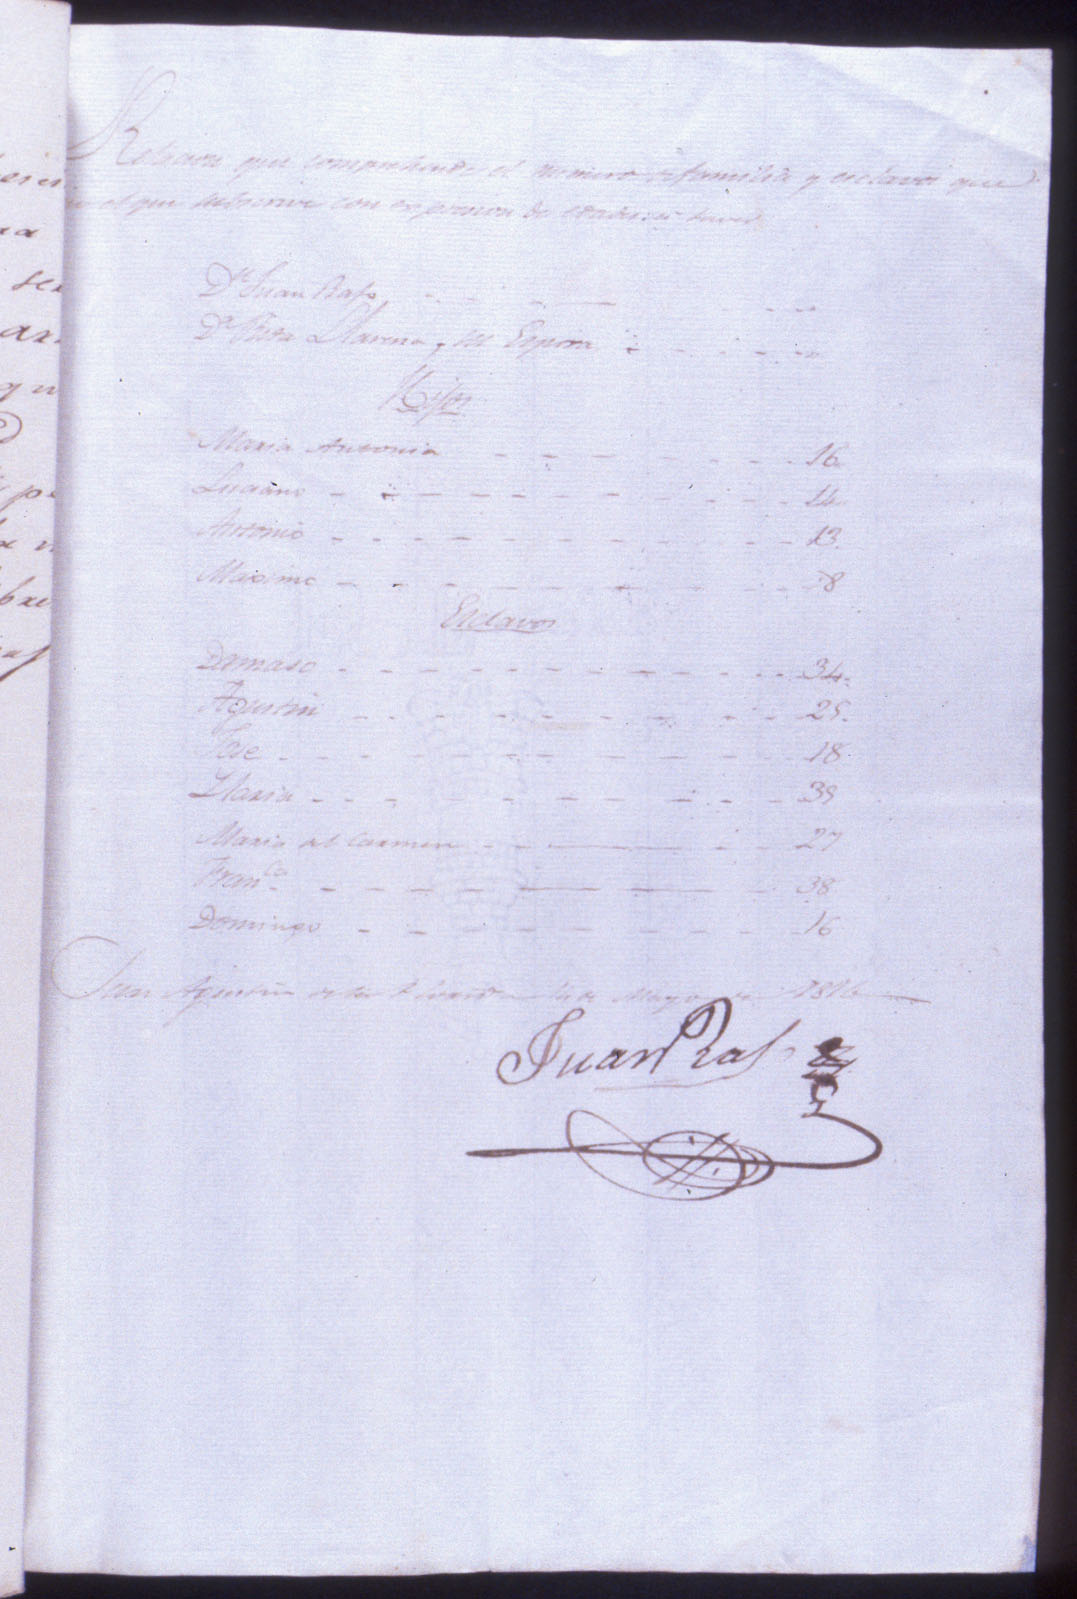 Relacion que comprehende el numero de familia y esclavos que
el que subscrive con exprecion de edades
Dn Juan Rafo
Da Llarena, su Esposa
Hijos
Maria Antonia - - - - - - - - 16.
Luciano - - - - - - - - 14
Antonio - - - - - - - - 13.
Maximo - - - - - - - - 8
Esclavos
Damaso - - - - - - - - 34.
Agustin - - - - - - - - 25.
Jose - - - - - - - - 18
Maria - - - - - - - - 39
Maria del Carmen - - - - - 27
Franco. - - - - - - - - 38
Domingo - - - - - - - - 16
San Agustin de la Florida Mayo de 1814
Juan Rafo